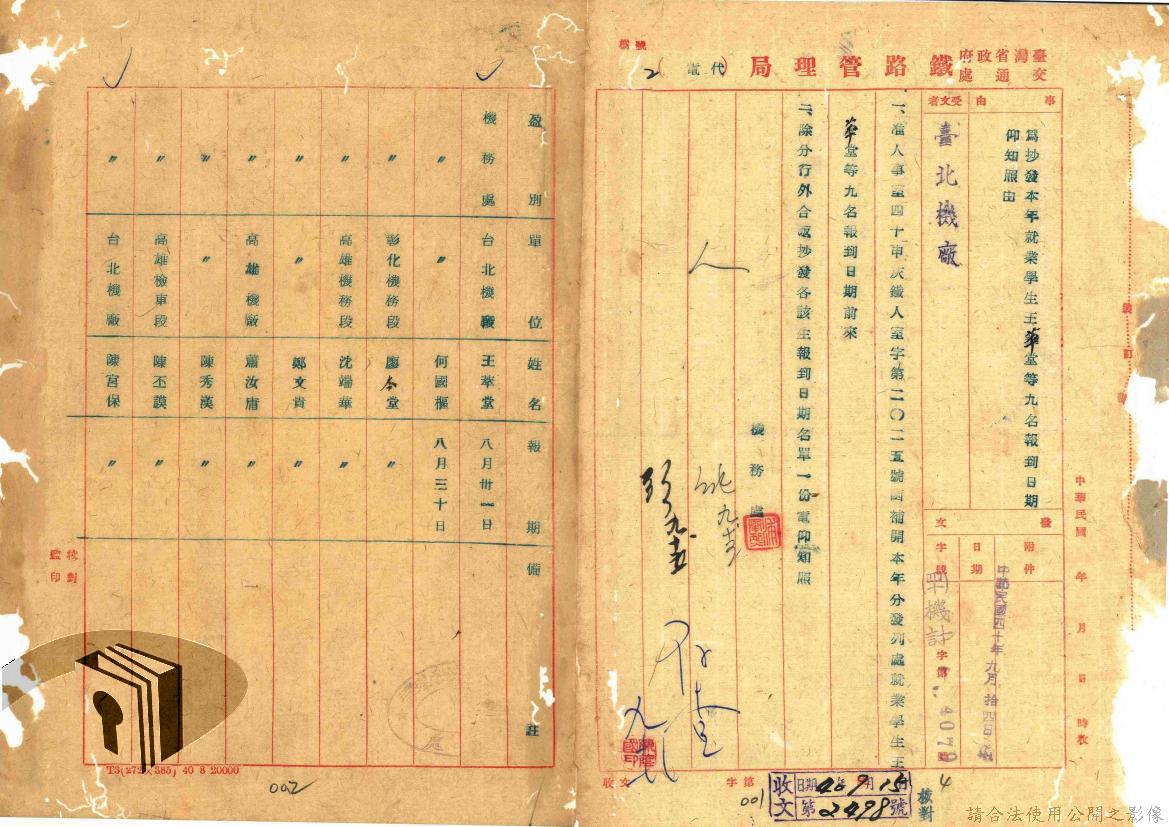 檔號
臺灣省政府
交通處
鐵路管理局
代電
事由
為抄發本年就業學生王華堂等九名報到日期
仰知照由
受文者
臺北機廠
發文
附件
日期
中華民國四十年九月拾四日
字號
四十機計
字第
號
一、准人事室四十申灰鐵人室字第二〇二五號函補開本年分發列處就業學生王
華堂等九名報到日期前來
二、除分行外合亟抄發各該生報到日期名單一份電仰知照
機務處
中華民國 年 月 日 時收
裝
訂
線
收文 字第
收文
日期 40年9月15日
第2498號
001
核對
4
盈別 單位 姓名 報期 備註
機務處 台北機段 王萃堂 八月卅一日
〃 〃 何國樞 八月三十日
〃 彰化機務段 廖今堂 〃
〃 高雄機務段 沈端華 〃
〃 〃 鄭文貴 〃
〃 高雄機廠 蕭汝庸 〃
〃 〃 陳秀漢 〃
〃 高雄檢車段 陳丕謨 〃
〃 台北機廠 陳宮保 〃
校對
監印
T3(272×385) 40 8 20000
002
請合法使用公開之影像